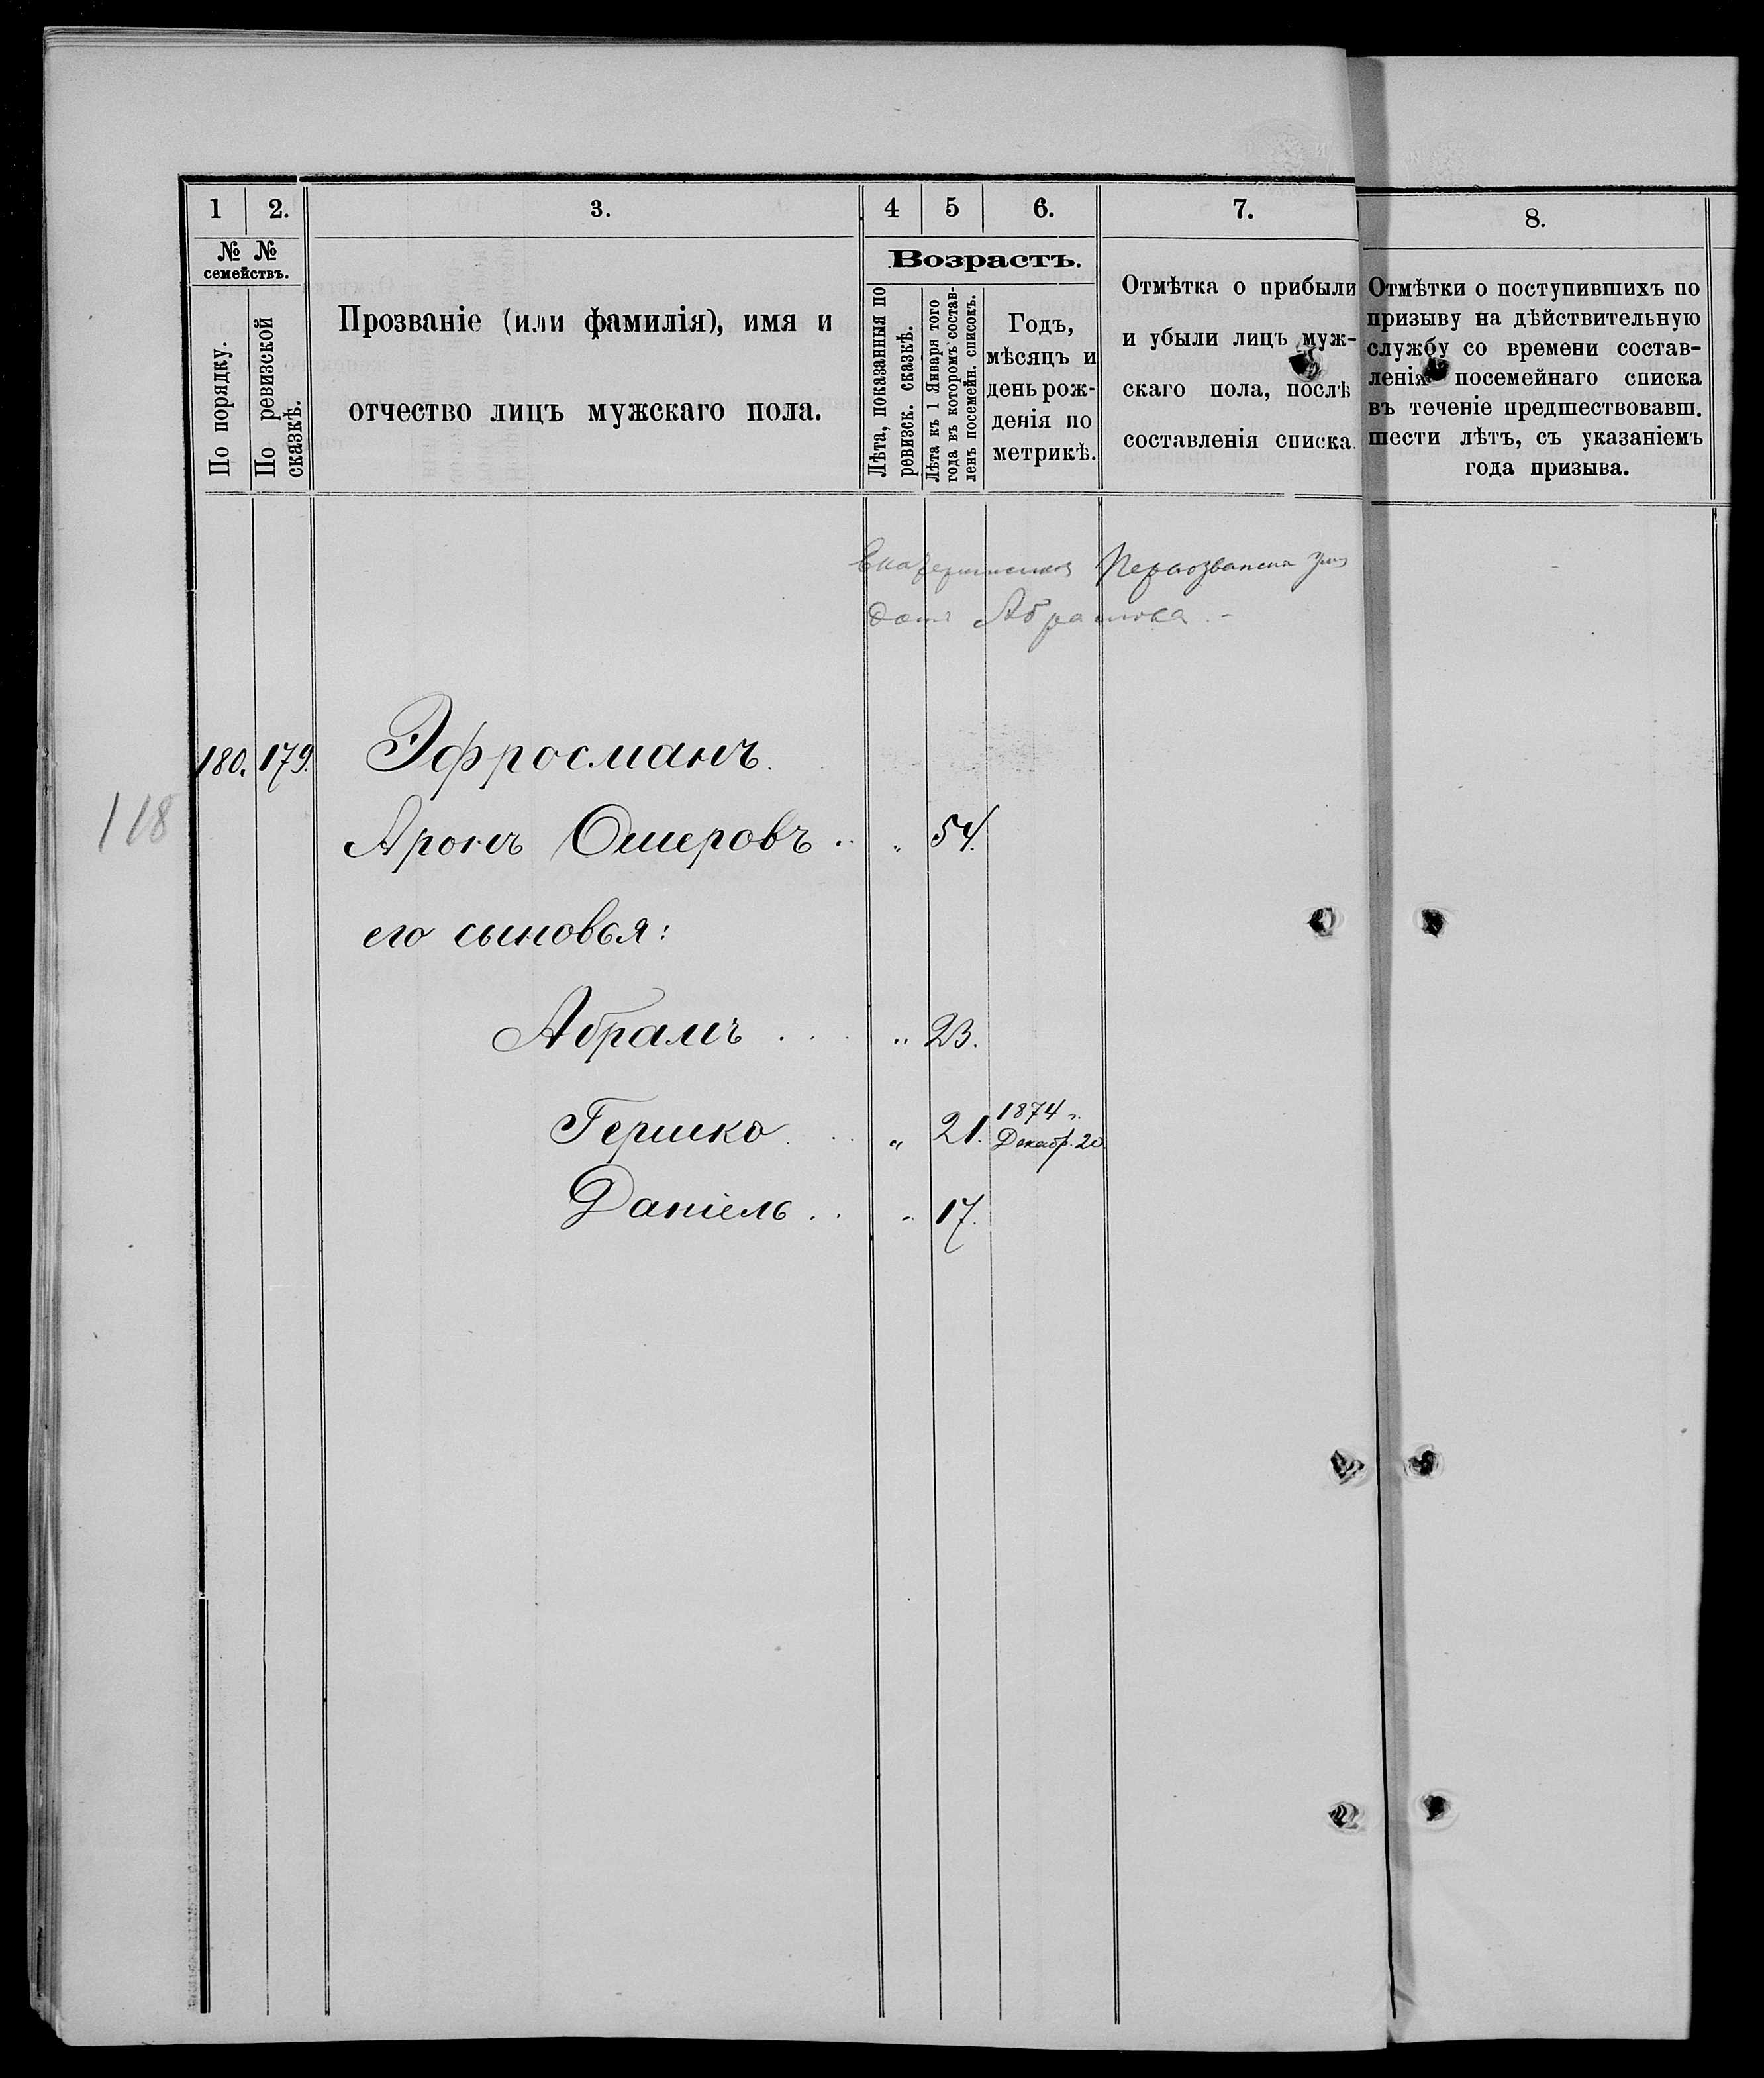 1 2. 3. 4 5 6. 7. 8.
№ № семействъ.
По порядку.
По ревизской сказкѣ.
Прозваніе (или фамилія), имя и
отчество лицъ мужскаго пола.
Возрастъ.
Лѣта, показанныя по
ревизск. сказкѣ.
Лѣта къ 1 Января того
года въ которомъ состав-
ленъ посемейн. списокъ.
Годъ,
мѣсяцъ и
день рож-
денія по
метрикѣ.
Отмѣтка о прибыли
и убыли лицъ муж-
скаго пола, послѣ
составленія списка.
Отмѣтки о поступившихъ по
призыву на дѣйствительную
службу со времени состав-
ленія посемейнаго списка
въ теченіе предшествовавш.
шести лѣтъ, съ указаніемъ
года призыва.
домъ Абрамова. -
180. 179. Эфросманъ.
118
Аронъ Ошеровъ . . „ 54.
его сыновья:
Абрамъ . . . „ 23.
Гершко . . „ 21. 1874 г.
Декабр. 20
Даніель . . „ 17.